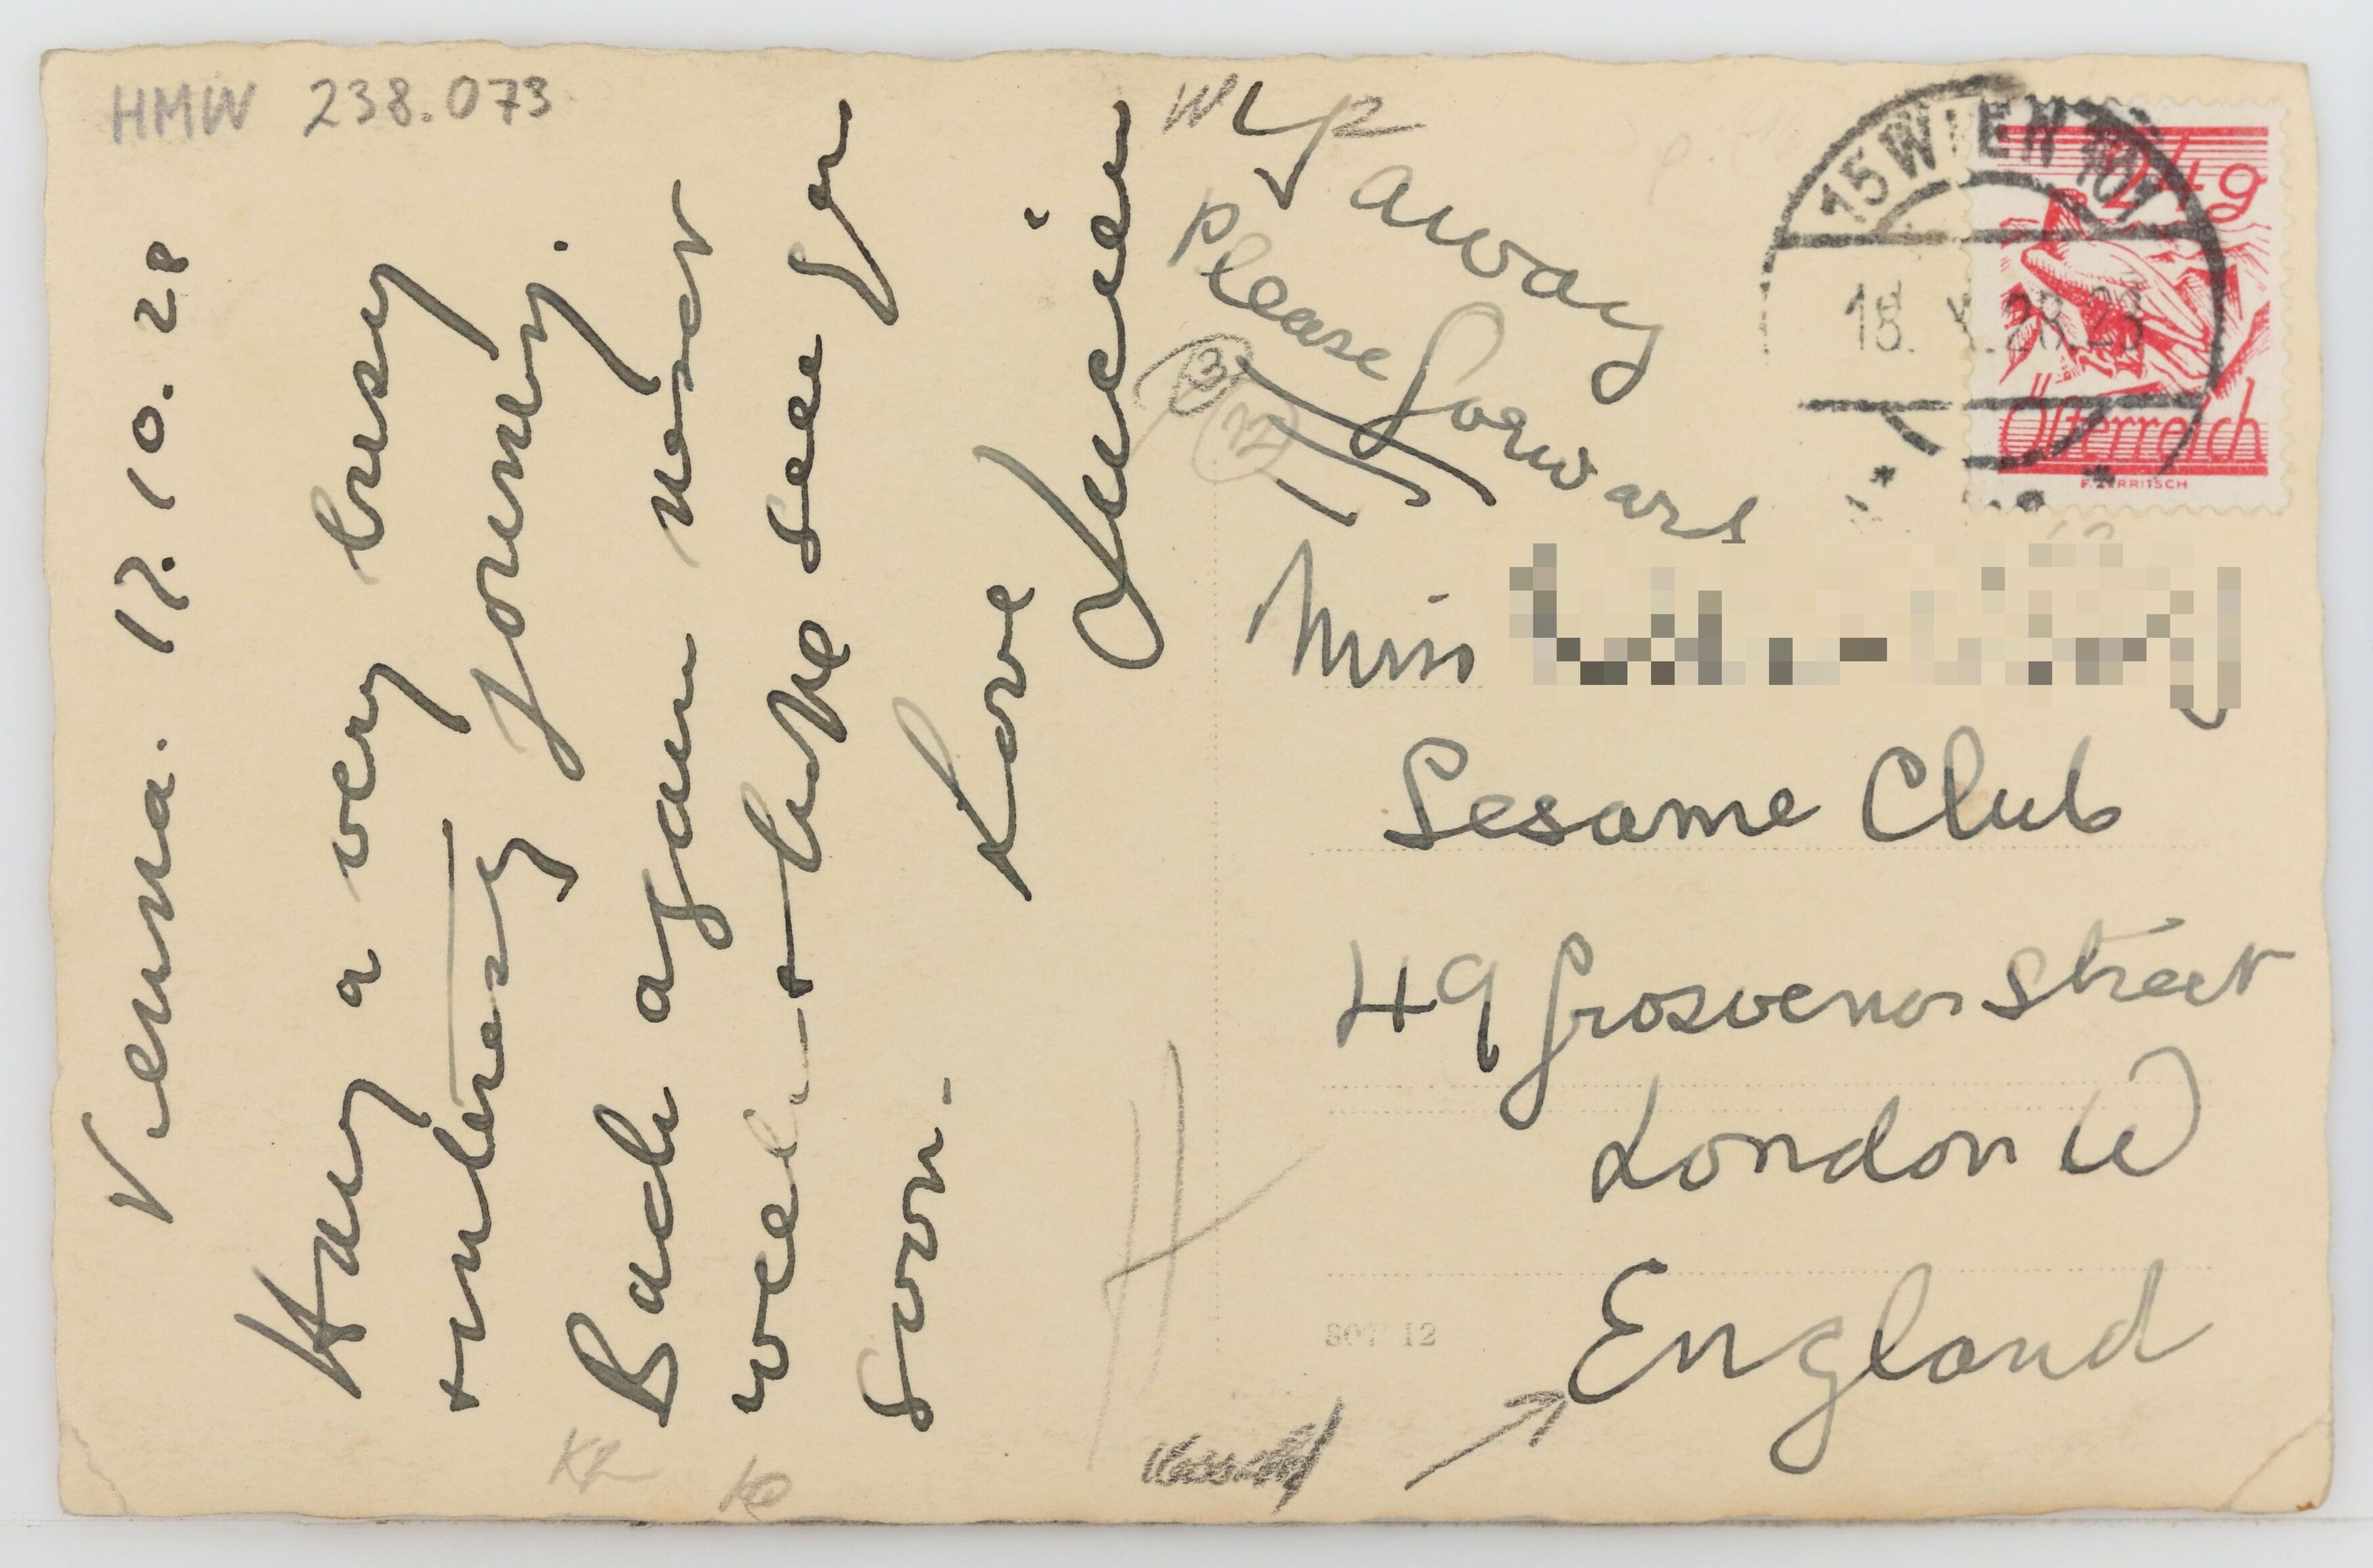 HMW 238.073
Vienna. 17.10.28
Having a very busy
+ interesting journey.
Back again next
week + hope see you
soon.
Love
Lucien
if away
please forward
15 WIEN 101
18. X. 28. 23
24g
Österreich
Miss
Sesame Club
49 Grosvenor Street
London W
England
807 12